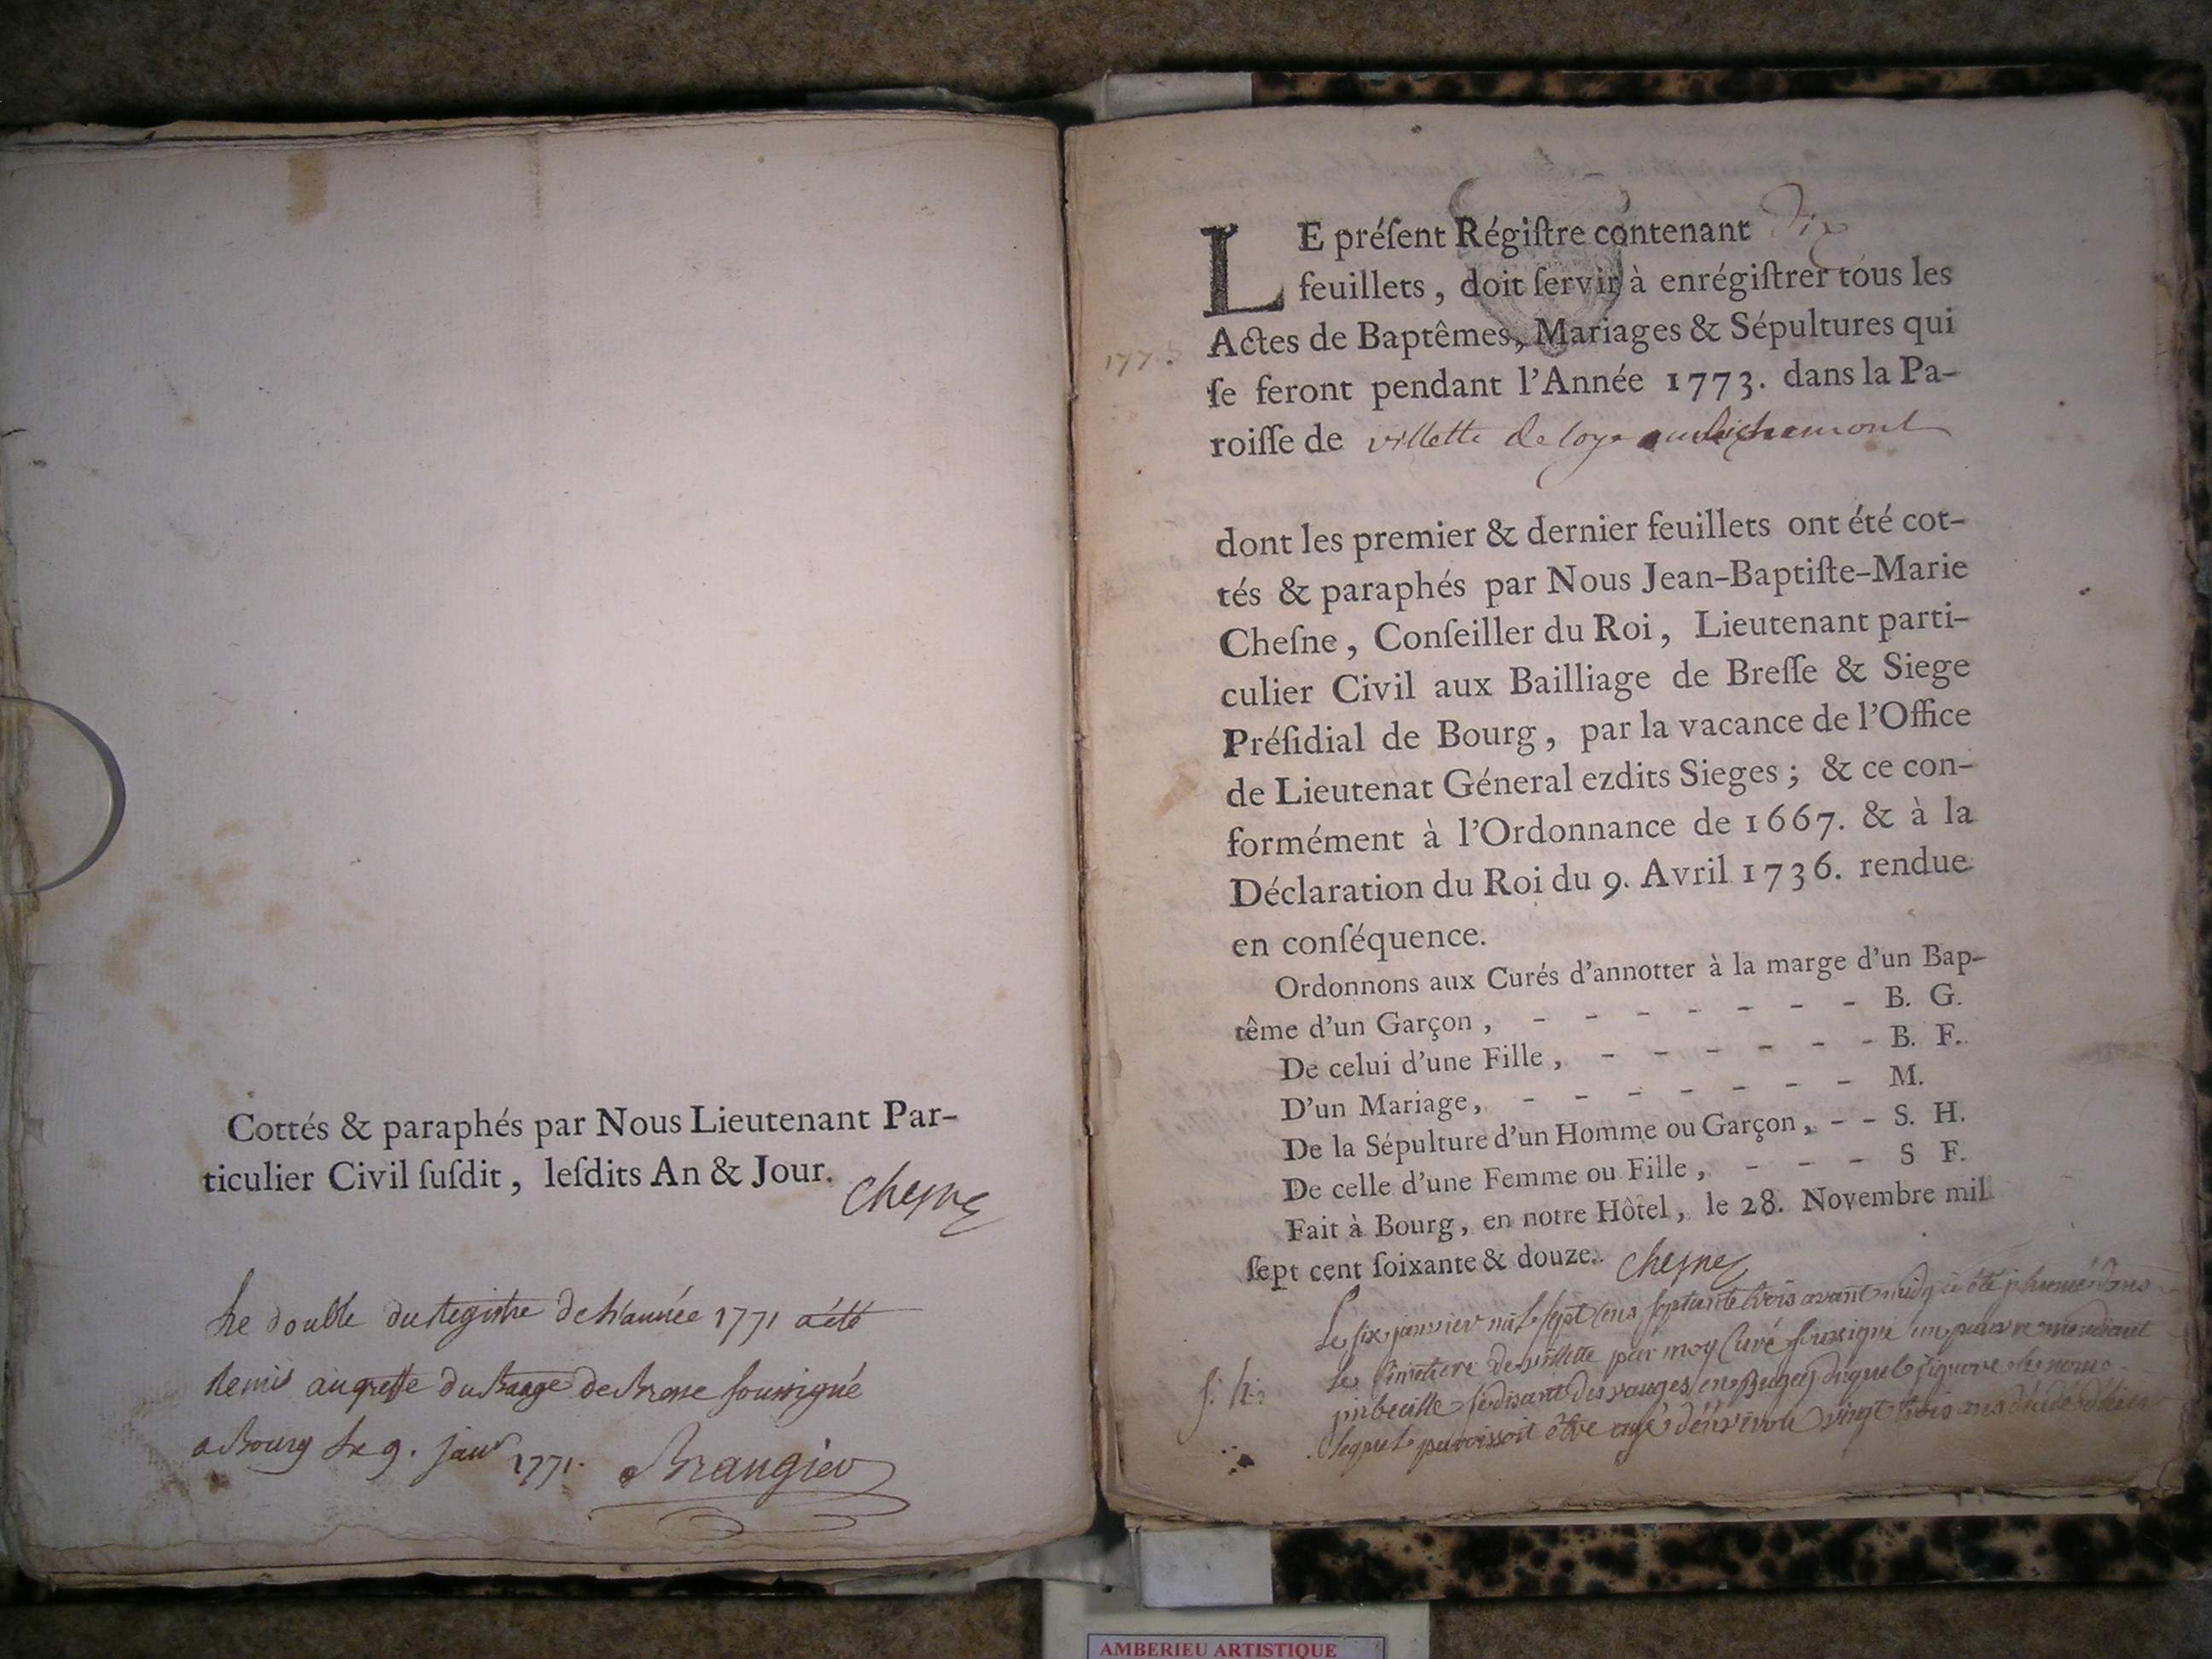 Cottés & paraphés par Nous Lieutenant Par-
ticulier Civil ſuſdit, leſdits An & Jour.
Chesne
Le double du Registre de l'année 1771 a été
Remis au greffe du Baage de Bresse soussigné
a Bourg Le 9. janr 1771. Brangier
LE préſent Régiſtre contenant Dix
feuillets, doit ſervir à enrégiſtrer tous les
Actes de Baptêmes, Mariages & Sépultures qui
1773.
ſe feront pendant l'Année 1773. dans la Pa-
roiſſe de villette de loye richemont
dont les premier & dernier feuillets ont été cot-
tés & paraphés par Nous Jean-Baptiſte-Marie
Cheſne, Conſeiller du Roi, Lieutenant parti-
culier Civil aux Bailliage de Breſſe & Siege
Préſidial de Bourg, par la vacance de l'Office
de Lieutenat Géneral ezdits Sieges; & ce con-
formément à l'Ordonnance de 1667. & à la
Déclaration du Roi du 9. Avril 1736. rendue
en conſéquence.
Ordonnons aux Curés d'annotter à la marge d'un Bap-
tême d'un Garçon, - - - - - - - B. G.
De celui d'une Fille, - - - - - - B. F.
D'un Mariage, - - - - - - - M.
De la Sépulture d'un Homme ou Garçon, - - S. H.
De celle d'une Femme ou Fille, - - - S F.
Fait à Bourg, en notre Hôtel, le 28. Novembre mil
ſept cent ſoixante & douze. Chesne
Le six janvier mil sept cens septante trois avant midy a été inhumé dans
le cimetiere de villette par moy Curé soussigné un pauvre mendiant
s. h.
imbecille se disant des vauges en Bugey duquel j'ignore le nom
lequel paroissoit être agé d'environ vingt trois ans décédé d'hier
AMBERIEU ARTISTIQUE